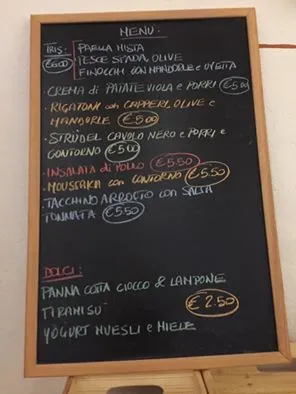 MENÙ:
IRIS: PAELLA MISTA
€6.00 PESCE SPADA, OLIVE
FINOCCHI CON MANDORLE e UVETTA
• CREMA di PATATE VIOLA e PORRI €5.00
• RIGATONI con CAPPERI, OLIVE e
MANDORLE €5.00
• STRUDEL CAVOLO NERO e PORRI e
CONTORNO €5.00
• INSALATA di POLLO €5.50
• MOUSSAKA con CONTORNO €5.50
TACCHINO ARROSTO con SALSA
TONNATA €5.50
DOLCI:
PANNA COTTA CIOCCO & LAMPONE
TIRAMISÙ €2.50
YOGURT MUESLI e MIELE